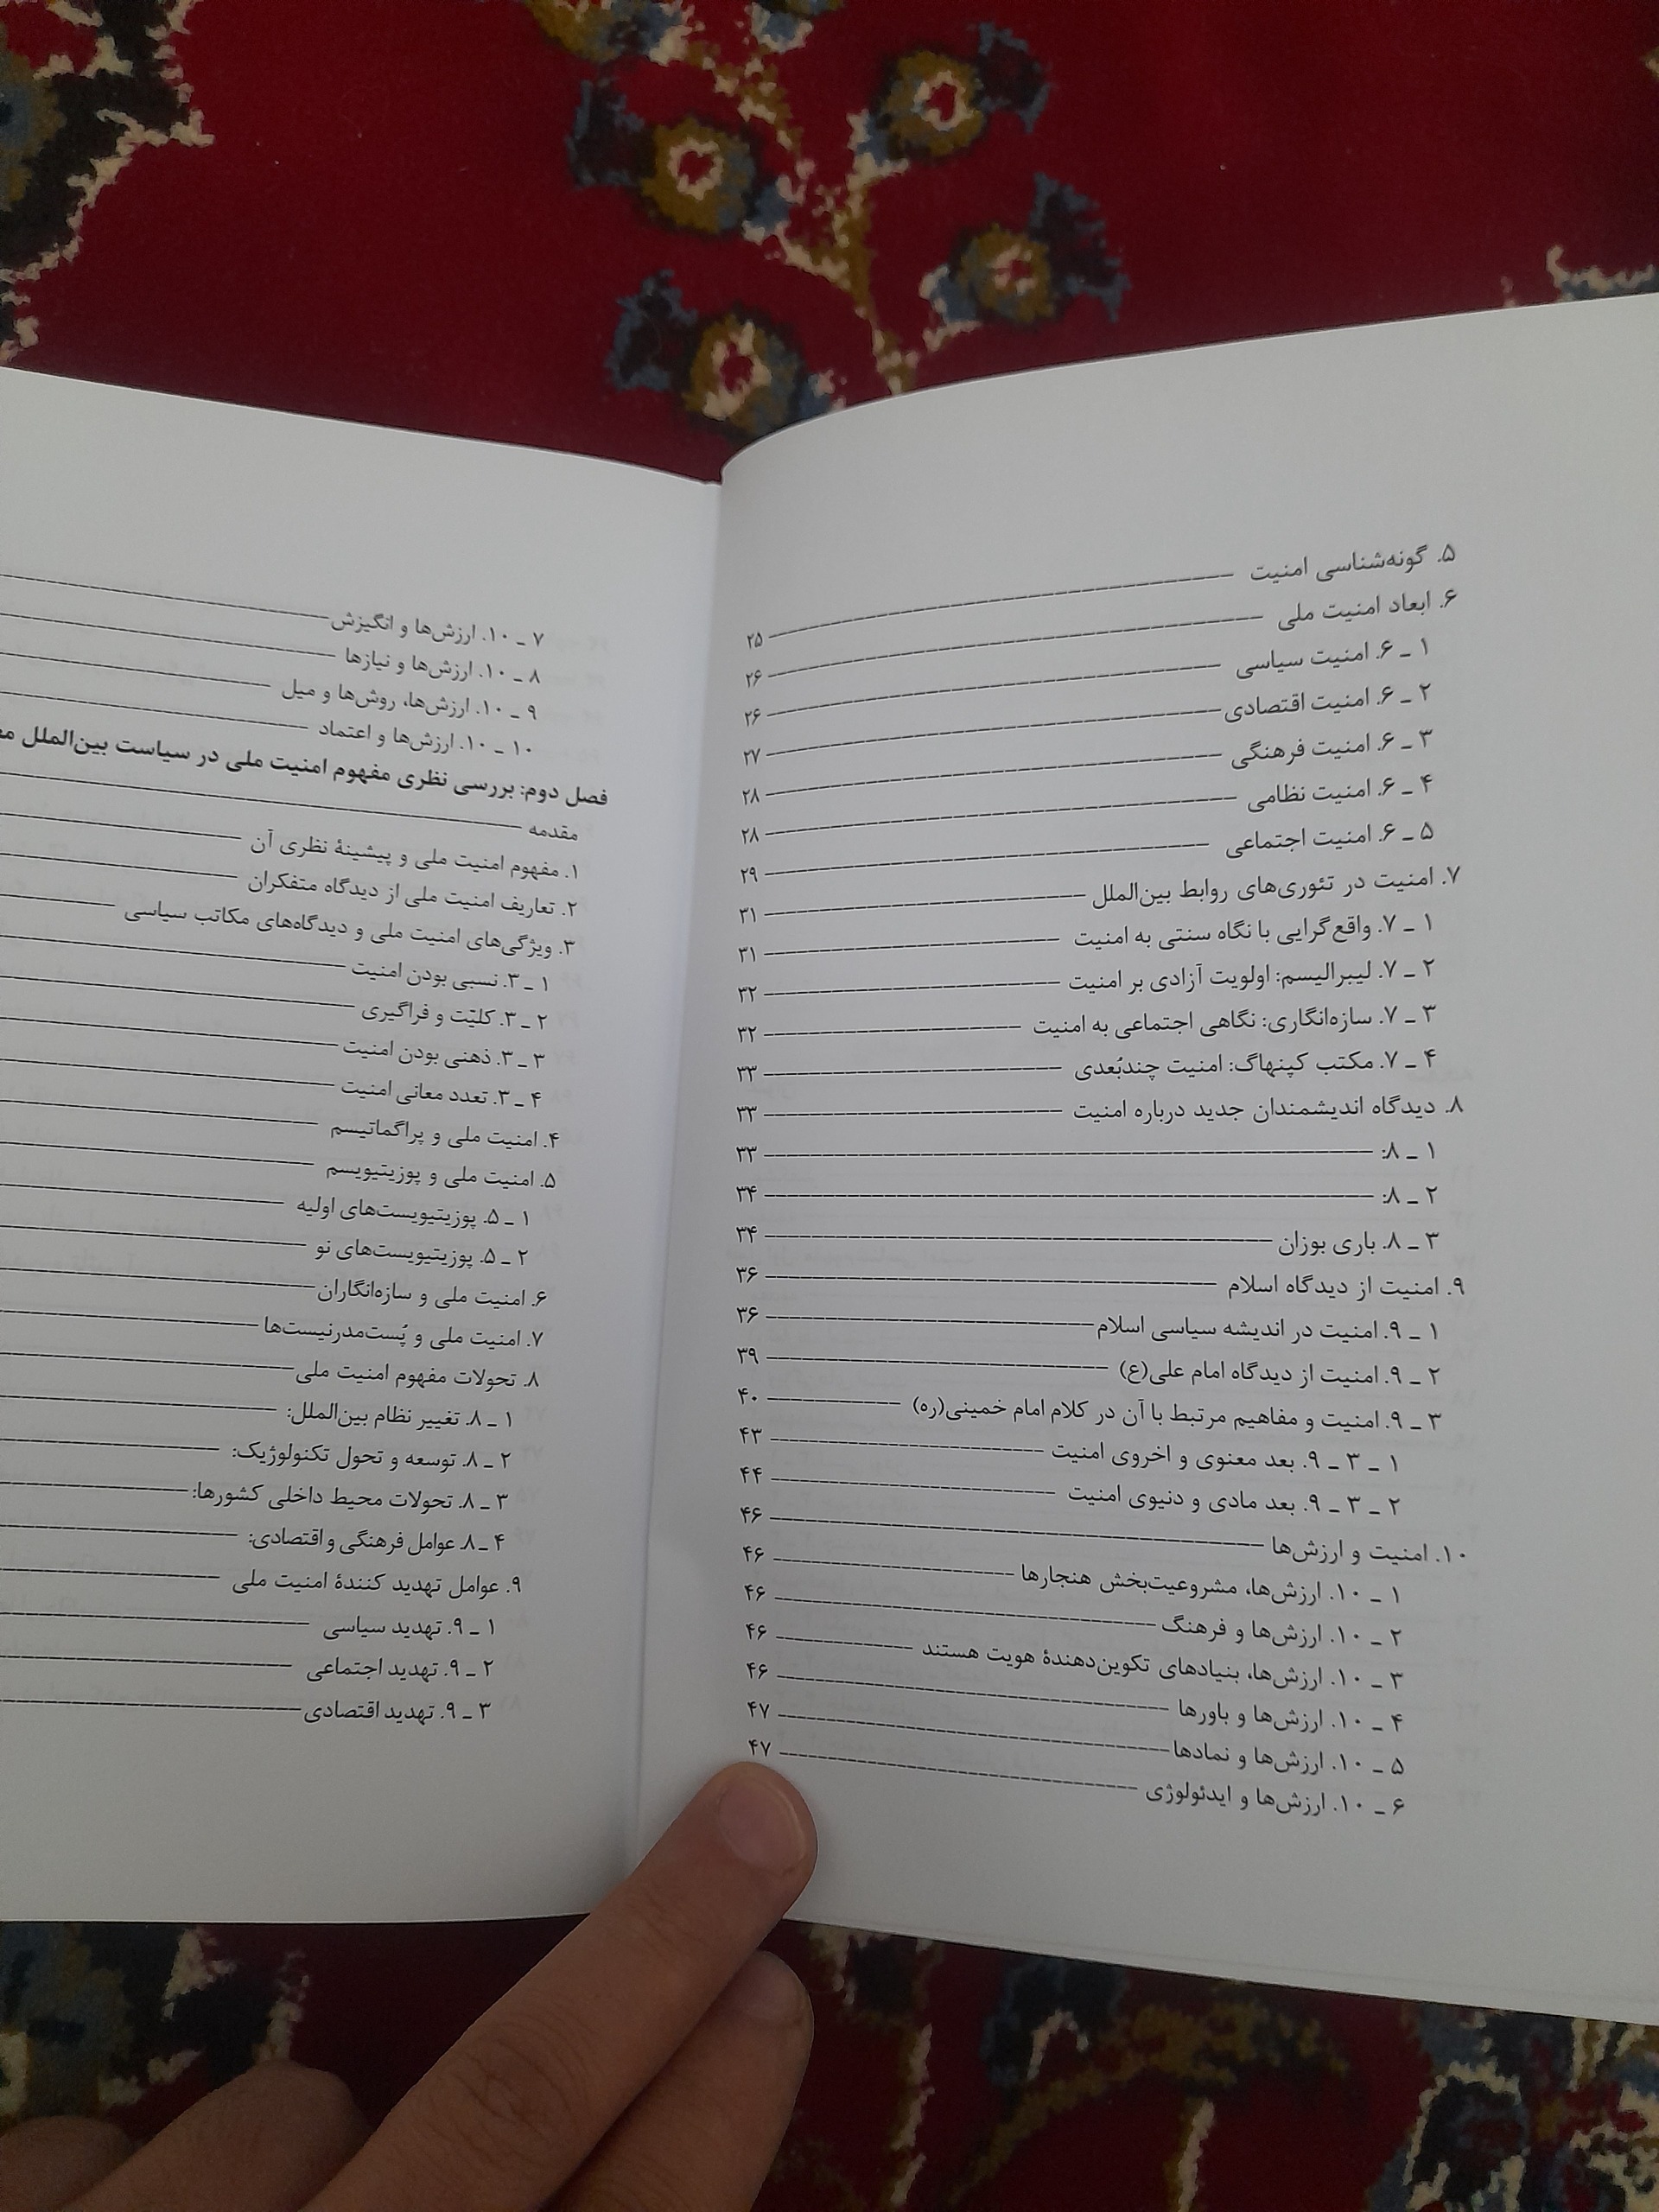 ۵. گونه‌شناسی امنیت ۲۵
۶. ابعاد امنیت ملی ۲۶
۱ ـ ۶. امنیت سیاسی ۲۶
۲ ـ ۶. امنیت اقتصادی ۲۷
۳ ـ ۶. امنیت فرهنگی ۲۸
۴ ـ ۶. امنیت نظامی ۲۸
۵ ـ ۶. امنیت اجتماعی ۲۹
۷. امنیت در تئوری‌های روابط بین‌الملل ۳۱
۱ ـ ۷. واقع‌گرایی با نگاه سنتی به امنیت ۳۱
۲ ـ ۷. لیبرالیسم: اولویت آزادی بر امنیت ۳۲
۳ ـ ۷. سازه‌انگاری: نگاهی اجتماعی به امنیت ۳۲
۴ ـ ۷. مکتب کپنهاگ: امنیت چندبُعدی ۳۳
۸. دیدگاه اندیشمندان جدید درباره امنیت ۳۳
۱ ـ ۸: ۳۳
۲ ـ ۸: ۳۴
۳ ـ ۸. باری بوزان ۳۴
۹. امنیت از دیدگاه اسلام ۳۶
۱ ـ ۹. امنیت در اندیشه سیاسی اسلام ۳۶
۲ ـ ۹. امنیت از دیدگاه امام علی(ع) ۳۹
۳ ـ ۹. امنیت و مفاهیم مرتبط با آن در کلام امام خمینی(ره) ۴۰
۱ ـ ۳ ـ ۹. بعد معنوی و اخروی امنیت ۴۳
۲ ـ ۳ ـ ۹. بعد مادی و دنیوی امنیت ۴۴
۱۰. امنیت و ارزش‌ها ۴۶
۱ ـ ۱۰. ارزش‌ها، مشروعیت‌بخش هنجارها ۴۶
۲ ـ ۱۰. ارزش‌ها و فرهنگ ۴۶
۳ ـ ۱۰. ارزش‌ها، بنیادهای تکوین‌دهندهٔ هویت هستند ۴۶
۴ ـ ۱۰. ارزش‌ها و باورها ۴۶
۵ ـ ۱۰. ارزش‌ها و نمادها ۴۷
۶ ـ ۱۰. ارزش‌ها و ایدئولوژی ۴۷
۷ ـ ۱۰. ارزش‌ها و انگیزش
۸ ـ ۱۰. ارزش‌ها و نیازها
۹ ـ ۱۰. ارزش‌ها، روش‌ها و میل
۱۰ ـ ۱۰. ارزش‌ها و اعتماد
فصل دوم: بررسی نظری مفهوم امنیت ملی در سیاست بین‌الملل
مقدمه
۱. مفهوم امنیت ملی و پیشینهٔ نظری آن
۲. تعاریف امنیت ملی از دیدگاه متفکران
۳. ویژگی‌های امنیت ملی و دیدگاه‌های مکاتب سیاسی
۱ ـ ۳. نسبی بودن امنیت
۲ ـ ۳. کلیّت و فراگیری
۳ ـ ۳. ذهنی بودن امنیت
۴ ـ ۳. تعدد معانی امنیت
۴. امنیت ملی و پراگماتیسم
۵. امنیت ملی و پوزیتیویسم
۱ ـ ۵. پوزیتیویست‌های اولیه
۲ ـ ۵. پوزیتیویست‌های نو
۶. امنیت ملی و سازه‌انگاران
۷. امنیت ملی و پُست‌مدرنیست‌ها
۸. تحولات مفهوم امنیت ملی
۱ ـ ۸. تغییر نظام بین‌الملل:
۲ ـ ۸. توسعه و تحول تکنولوژیک:
۳ ـ ۸. تحولات محیط داخلی کشورها:
۴ ـ ۸. عوامل فرهنگی و اقتصادی:
۹. عوامل تهدید کنندهٔ امنیت ملی
۱ ـ ۹. تهدید سیاسی
۲ ـ ۹. تهدید اجتماعی
۳ ـ ۹. تهدید اقتصادی